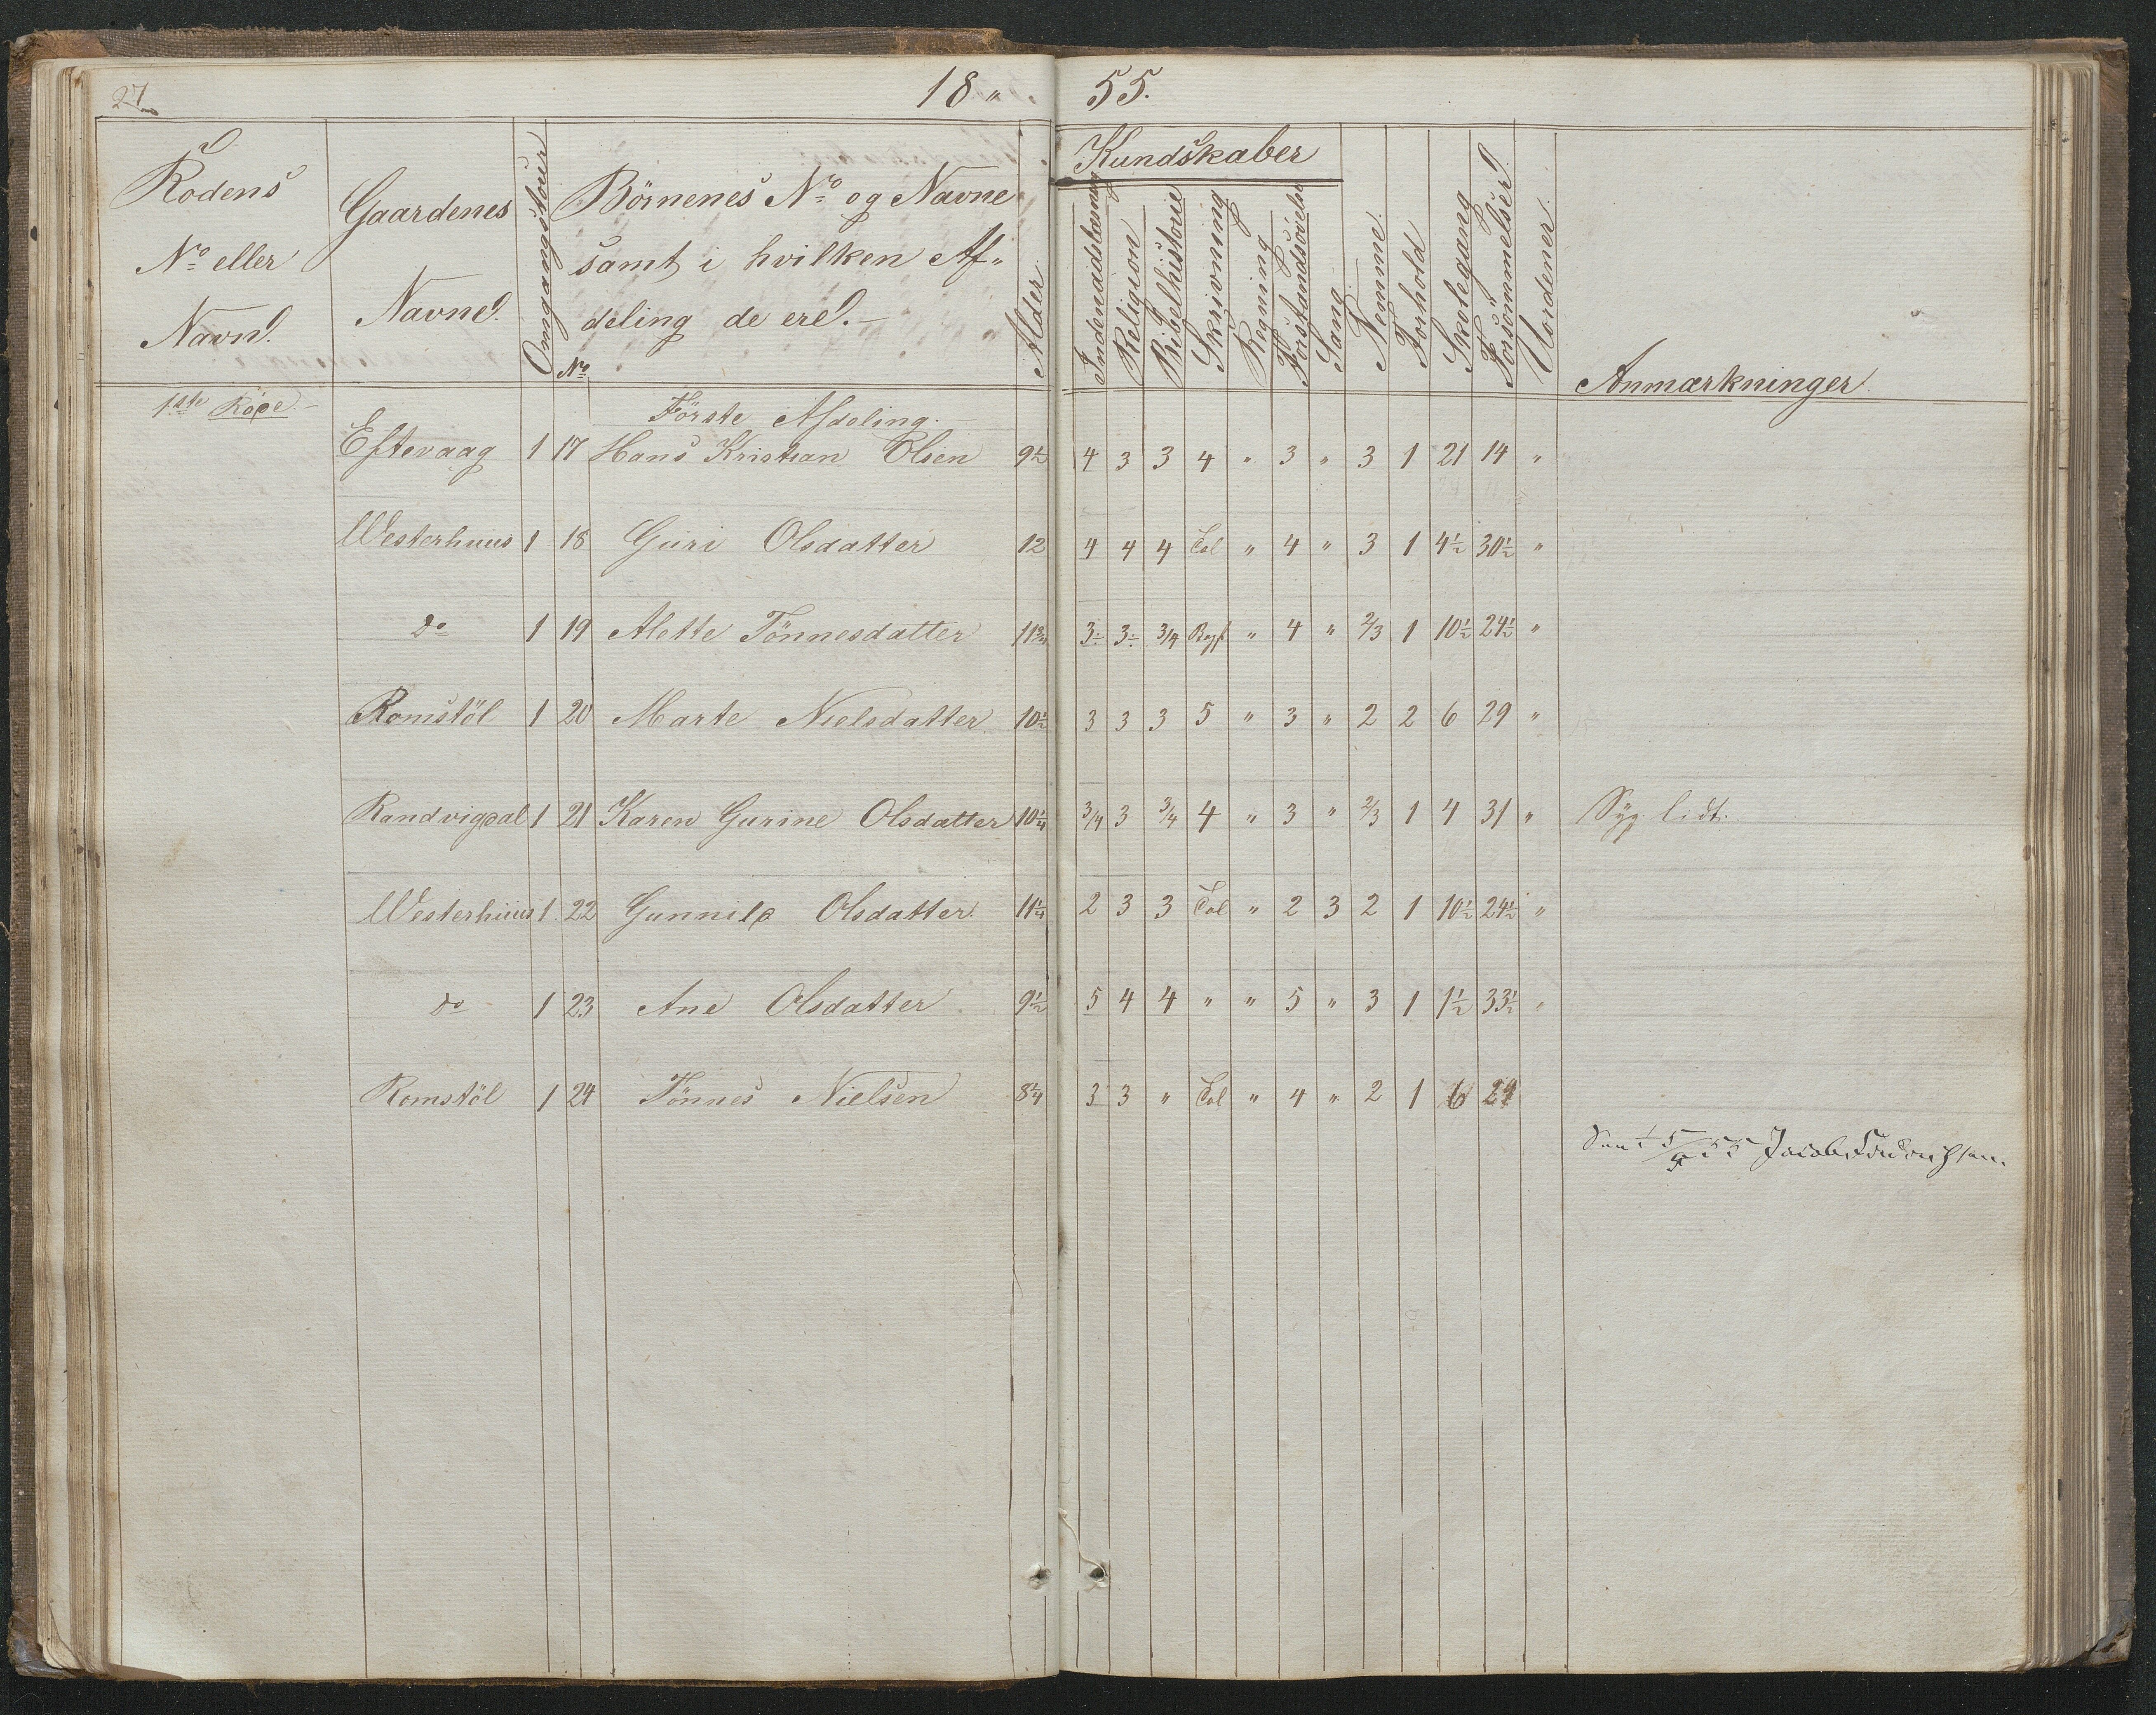 27
18 " 55.
Rodens No eller Navn.
Gaardenes Navne.
Omgangstour
No
Börnenes No og Navne samt i hvilken Af- deling de ere.
Alder
Kundskaber
Indenadslæsning
Religion
Bibelhistorie
Skrivning
Regning
Forstandsøvelse
Sang
Nemme.
Forhold
Skolegang
Forsömmelser
Uordener.
Anmærkninger.
1ste Rode.
Förste Afdeling.
Eftevaag 1 17 Hans Kristian Olsen 9½ 4 3 3 4 " 3 " 3 1 21 14 "
Westerhuus 1 18 Guri Olsdatter 12 4 4 4 Col " 4 " 3 1 4½ 30½ "
do 1 19 Alette Tönnesdatter 11¾ 3÷ 3÷ 3/4 Bogst " 4 " 2/3 1 10½ 24½ "
Romstöl 1 20 Marte Nielsdatter 10½ 3 3 3 5 " 3 " 2 2 6 29 "
Randvigdal 1 21 Karen Gurine Olsdatter 10¼ 3/4 3 3/4 4 " 3 " 2/3 1 4 31 " Syg lidt.
Westerhuus 1 22 Gunnild Olsdatter 11¼ 2 3 3 Col " 2 3 2 1 10½ 24½ "
do 1 23 Ane Olsdatter 9½ 5 4 4 " " 5 " 3 1 1½ 33½ "
Romstöl 1 24 Tönnes Nielsen 8¼ 3 3 " Col " 4 " 2 1 6 29
5/4 55 Jacob